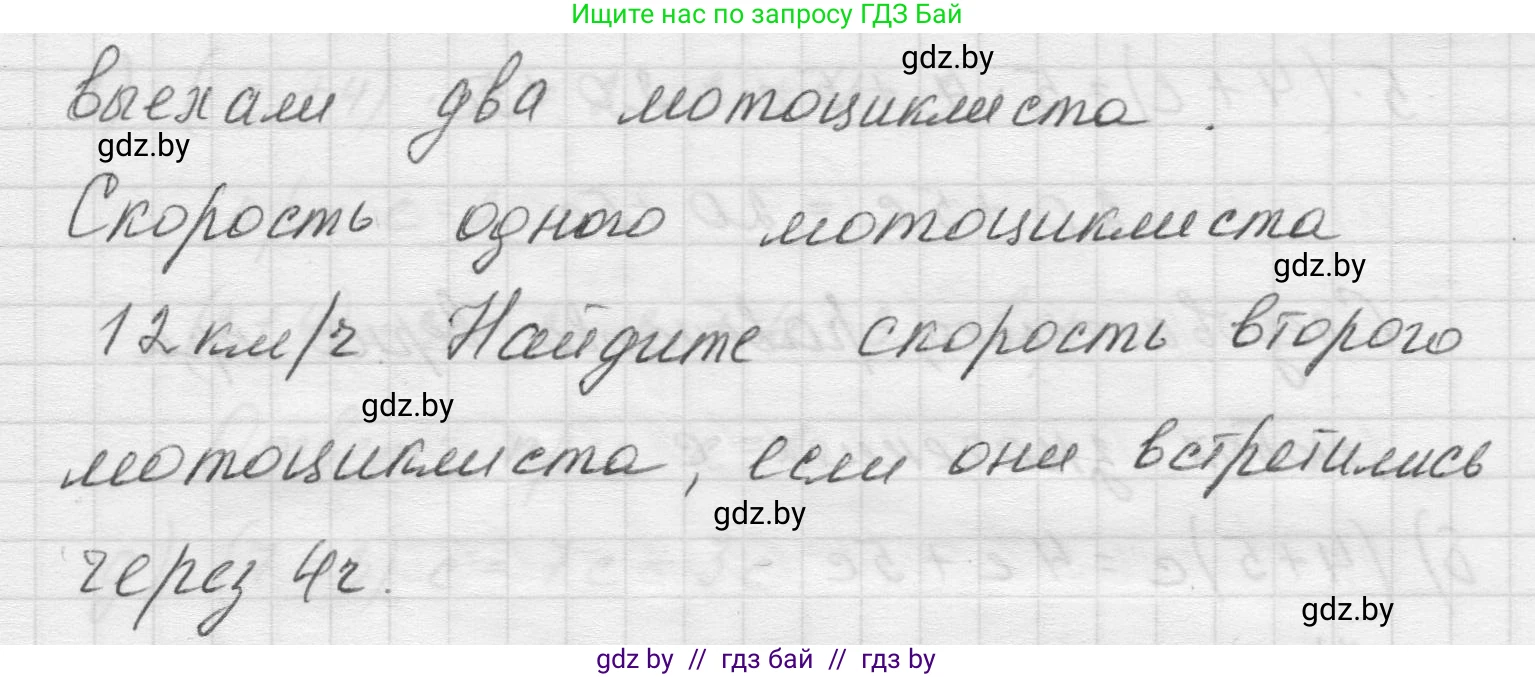 Ищите нас по запросу ГДЗ Бай
gdz.by
выехали два мотоциклиста.
gdz.by
Скорость одного мотоциклиста
gdz.by
12 км/ч. Найдите скорость второго
gdz.by
мотоциклиста, если они встретились
gdz.by
через 4ч.
gdz.by
gdz by // гдз бай // гдз by